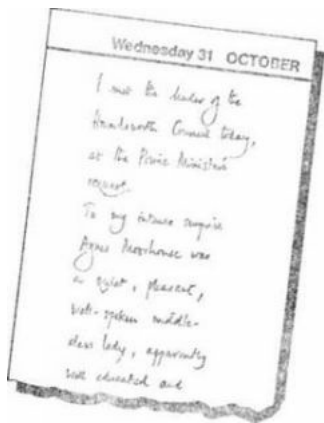 Wednesday 31 OCTOBER
I met the leader of the
Houndsworth Council today,
at the Prime Minister's
request.
To my intense surprise
Agnes Moorhouse was
a quiet, pleasant,
well-spoken middle-
class lady, apparently
well educated and